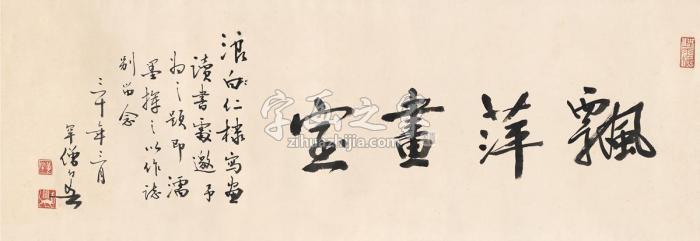 飄萍畫室
浪白仁棣寫画
讀書處邀予
為之題即濡
墨揮之以作誌
別留念
三十年三月
字画之家
zihuazhijia.com